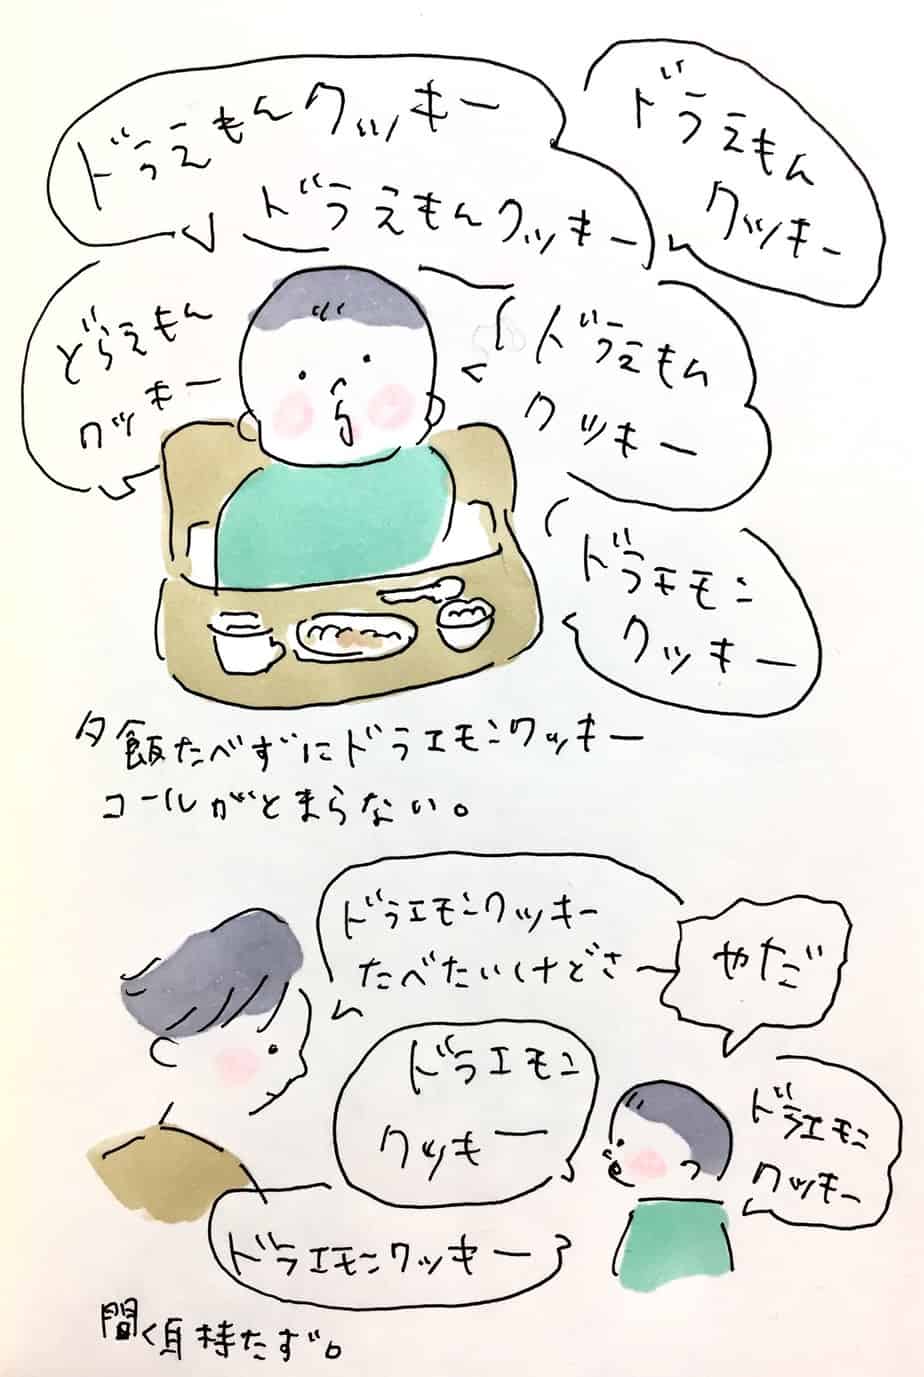 ドラえもんクッキー
ドラえもんクッキー
ドラえもん
クッキー
どらえもん
クッキー
ドラえもん
クッキー
ドラモモン
クッキー
夕飯たべずにドラエモンクッキー
コールがとまらない。
ドラエモンクッキー
たべたいけどさー
やだ
ドラエモン
クッキー
ドラエモン
クッキー
ドラエモンクッキー
聞く耳持たず。